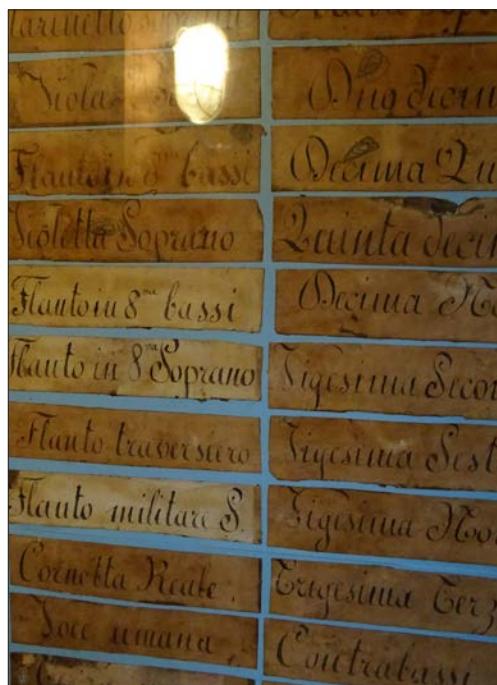 Clarinetto soprani
Viola
Flauto in 8va bassi
Violetta Soprano
Flauto in 8va bassi
Flauto in 8va Soprano
Flauto traversiero
Flauto militare S.
Cornetta Reale.
Voce umana
Duodecim
Decima Qu
Quinta decim
Decima No
Vigesima Secon
Vigesima Sest
Vigesima Non
Trigesima Terz
Contrabassi